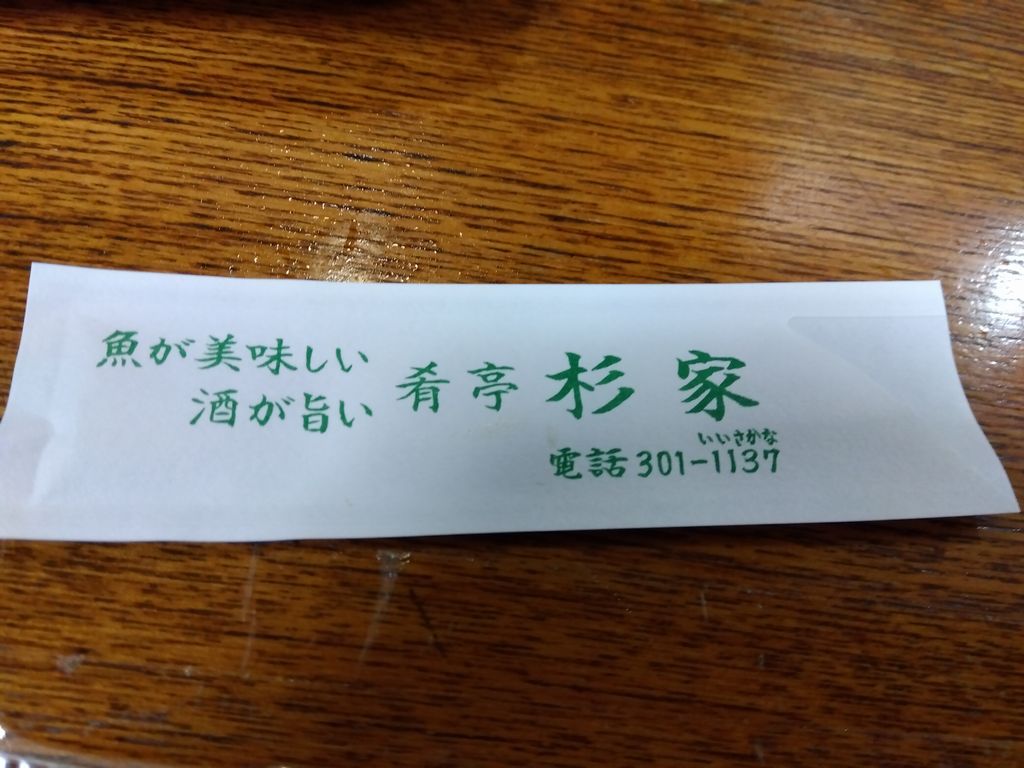 魚が美味しい
酒が旨い
肴亭 杉家
いいさかな
電話301-1137